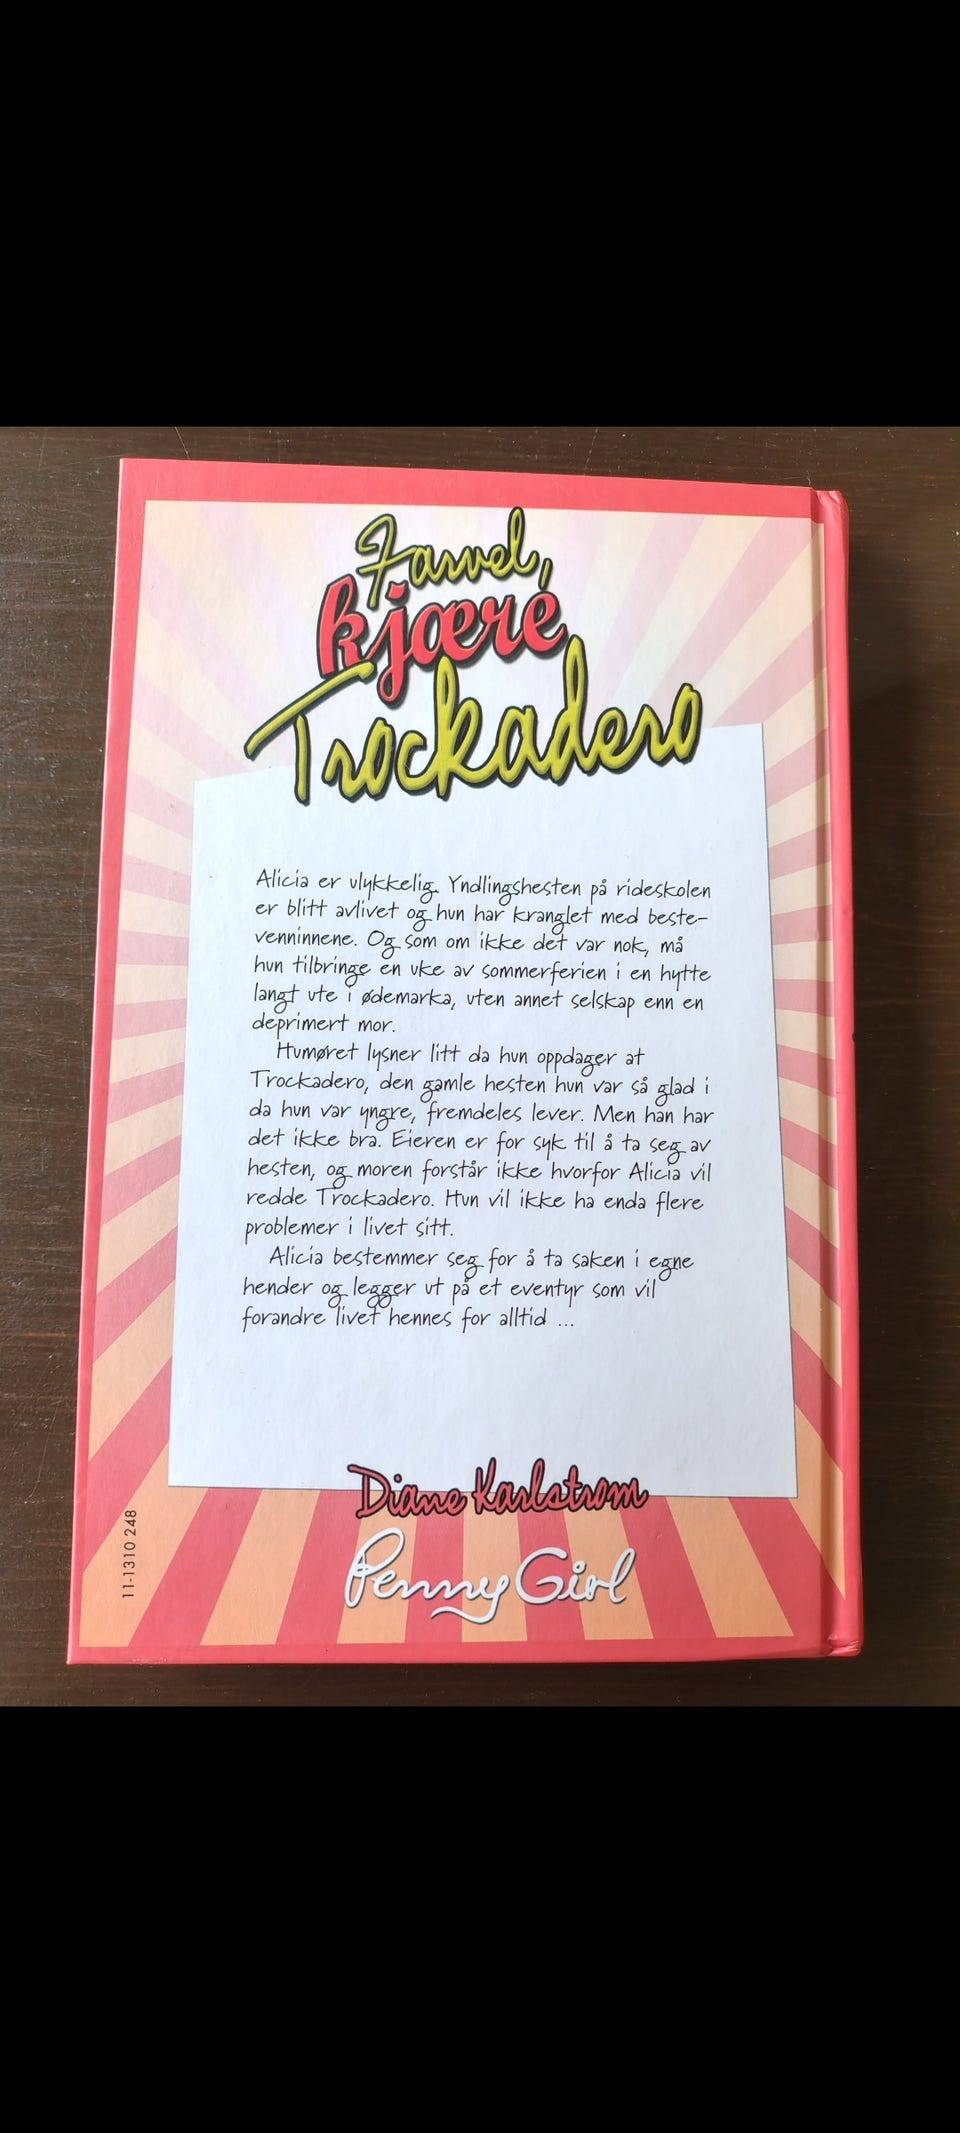 Farvel,
kjære
Trockadero
Alicia er ulykkelig. Yndlingshesten på rideskolen
er blitt avlivet og hun har kranglet med beste-
venninnene. Og som om ikke det var nok, må
hun tilbringe en uke av sommerferien i en hytte
langt ute i ødemarka, uten annet selskap enn en
deprimert mor.
Humøret lysner litt da hun oppdager at
Trockadero, den gamle hesten hun var så glad i
da hun var yngre, fremdeles lever. Men han har
det ikke bra. Eieren er for syk til å ta seg av
hesten, og moren forstår ikke hvorfor Alicia vil
redde Trockadero. Hun vil ikke ha enda flere
problemer i livet sitt.
Alicia bestemmer seg for å ta saken i egne
hender og legger ut på et eventyr som vil
forandre livet hennes for alltid ...
Diane Karlstrøm
Penny Girl
11-1310 248